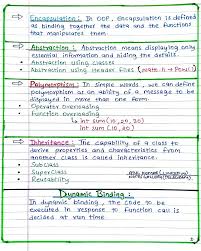 Encapsulation : In OOP, Encapsulation is defined
as binding together the data and the functions
that manipulates them.
Abstraction : Abstraction means displaying only
essential information and hiding the details.
• Abstraction using classes
• Abstraction using Header files (math.h → pow())
Polymorphism : In simple words, we can define
polymorphism as an ability of a message to be
displayed in more than one form.
• Operator Overloading
• Function Overloading
int sum (10, 20, 30)
int sum (10, 20)
Inheritance : The capability of a class to
derive properties and characteristics from
another class is called inheritance.
• Subclass
• Superclass
• Reusability
Dynamic Binding :
In dynamic binding, the code to be
executed in response to function call is
decided at run time